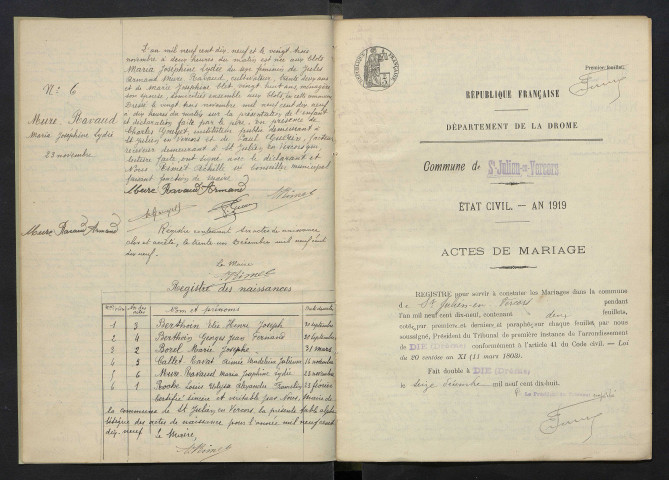 N° 6
Mure Ravaud
Maria Joséphine Lydie
23 novembre
L'an mil neuf cent dix neuf et le vingt trois
novembre à deux heures du matin est née aux Clots
Maria Joséphine Lydie du sexe féminin de Jules
Armand Mure Ravaud, cultivateur, trente deux ans
et de Marie Joséphine vingt huit ans, ménagère
son épouse, domiciliés ensemble aux Clots, en cette commune
Dressé le vingt trois novembre mil neuf cent dix neuf
à dix heures du matin sur la présentation de l'enfant
et déclaration faite par le père, en présence de
Charles instituteur public demeurant à
St Julien en Vercors et de Paul facteur
receveur demeurant à St Julien en Vercors qui
lecture faite, ont signé avec le déclarant et
Nous Achille conseiller municipal
faisant fonction de maire
Mure Ravaud Armand
Mure Ravaud Armand
Registre contenant six actes de naissance
clos et arrêté, le trente un Décembre mil neuf cent
dix neuf
Le Maire
Registre des naissances
Nos d'ordre Nos des actes Nom et prénoms Date des actes
1 3 Berthoin Elie Henri Joseph 20 septembre
2 4 Berthoin Georges Jean Fernand 20 septembre
3 2 Borel Marie Josephe 31 mars
4 5 Callet Ravat Aimé 16 novembre
5 6 Mure Ravaud Maria Joséphine Lydie 23 novembre
6 1 Roche Louis Ulysse Alexandre 23 février
Certifié sincère et véritable par Nous, Maire de
la commune de St Julien en Vercors, la présente table alpha
bétique des actes de naissance pour l'année mil neuf cent
dix neuf Le Maire,
Premier feuillet,
RÉPUBLIQUE FRANÇAISE
DÉPARTEMENT DE LA DROME
Commune de St-Julien-en-Vercors
ÉTAT CIVIL. — AN 1919
ACTES DE MARIAGE
REGISTRE pour servir à constater les Mariages dans la commune
d e St Julien en Vercors pendant
l'an mil neuf cent dix-neuf, contenant deux feuillets,
cotés, par premier et dernier, et paraphés sur chaque feuillet, par nous
soussigné, Président du Tribunal de première instance de l'arrondissement
de DIE (Drôme), conformément à l'article 41 du Code civil. — Loi
du 20 ventôse an XI (11 mars 1803).
Fait double à DIE (Drôme)
le seize Décembre mil neuf cent dix-huit.